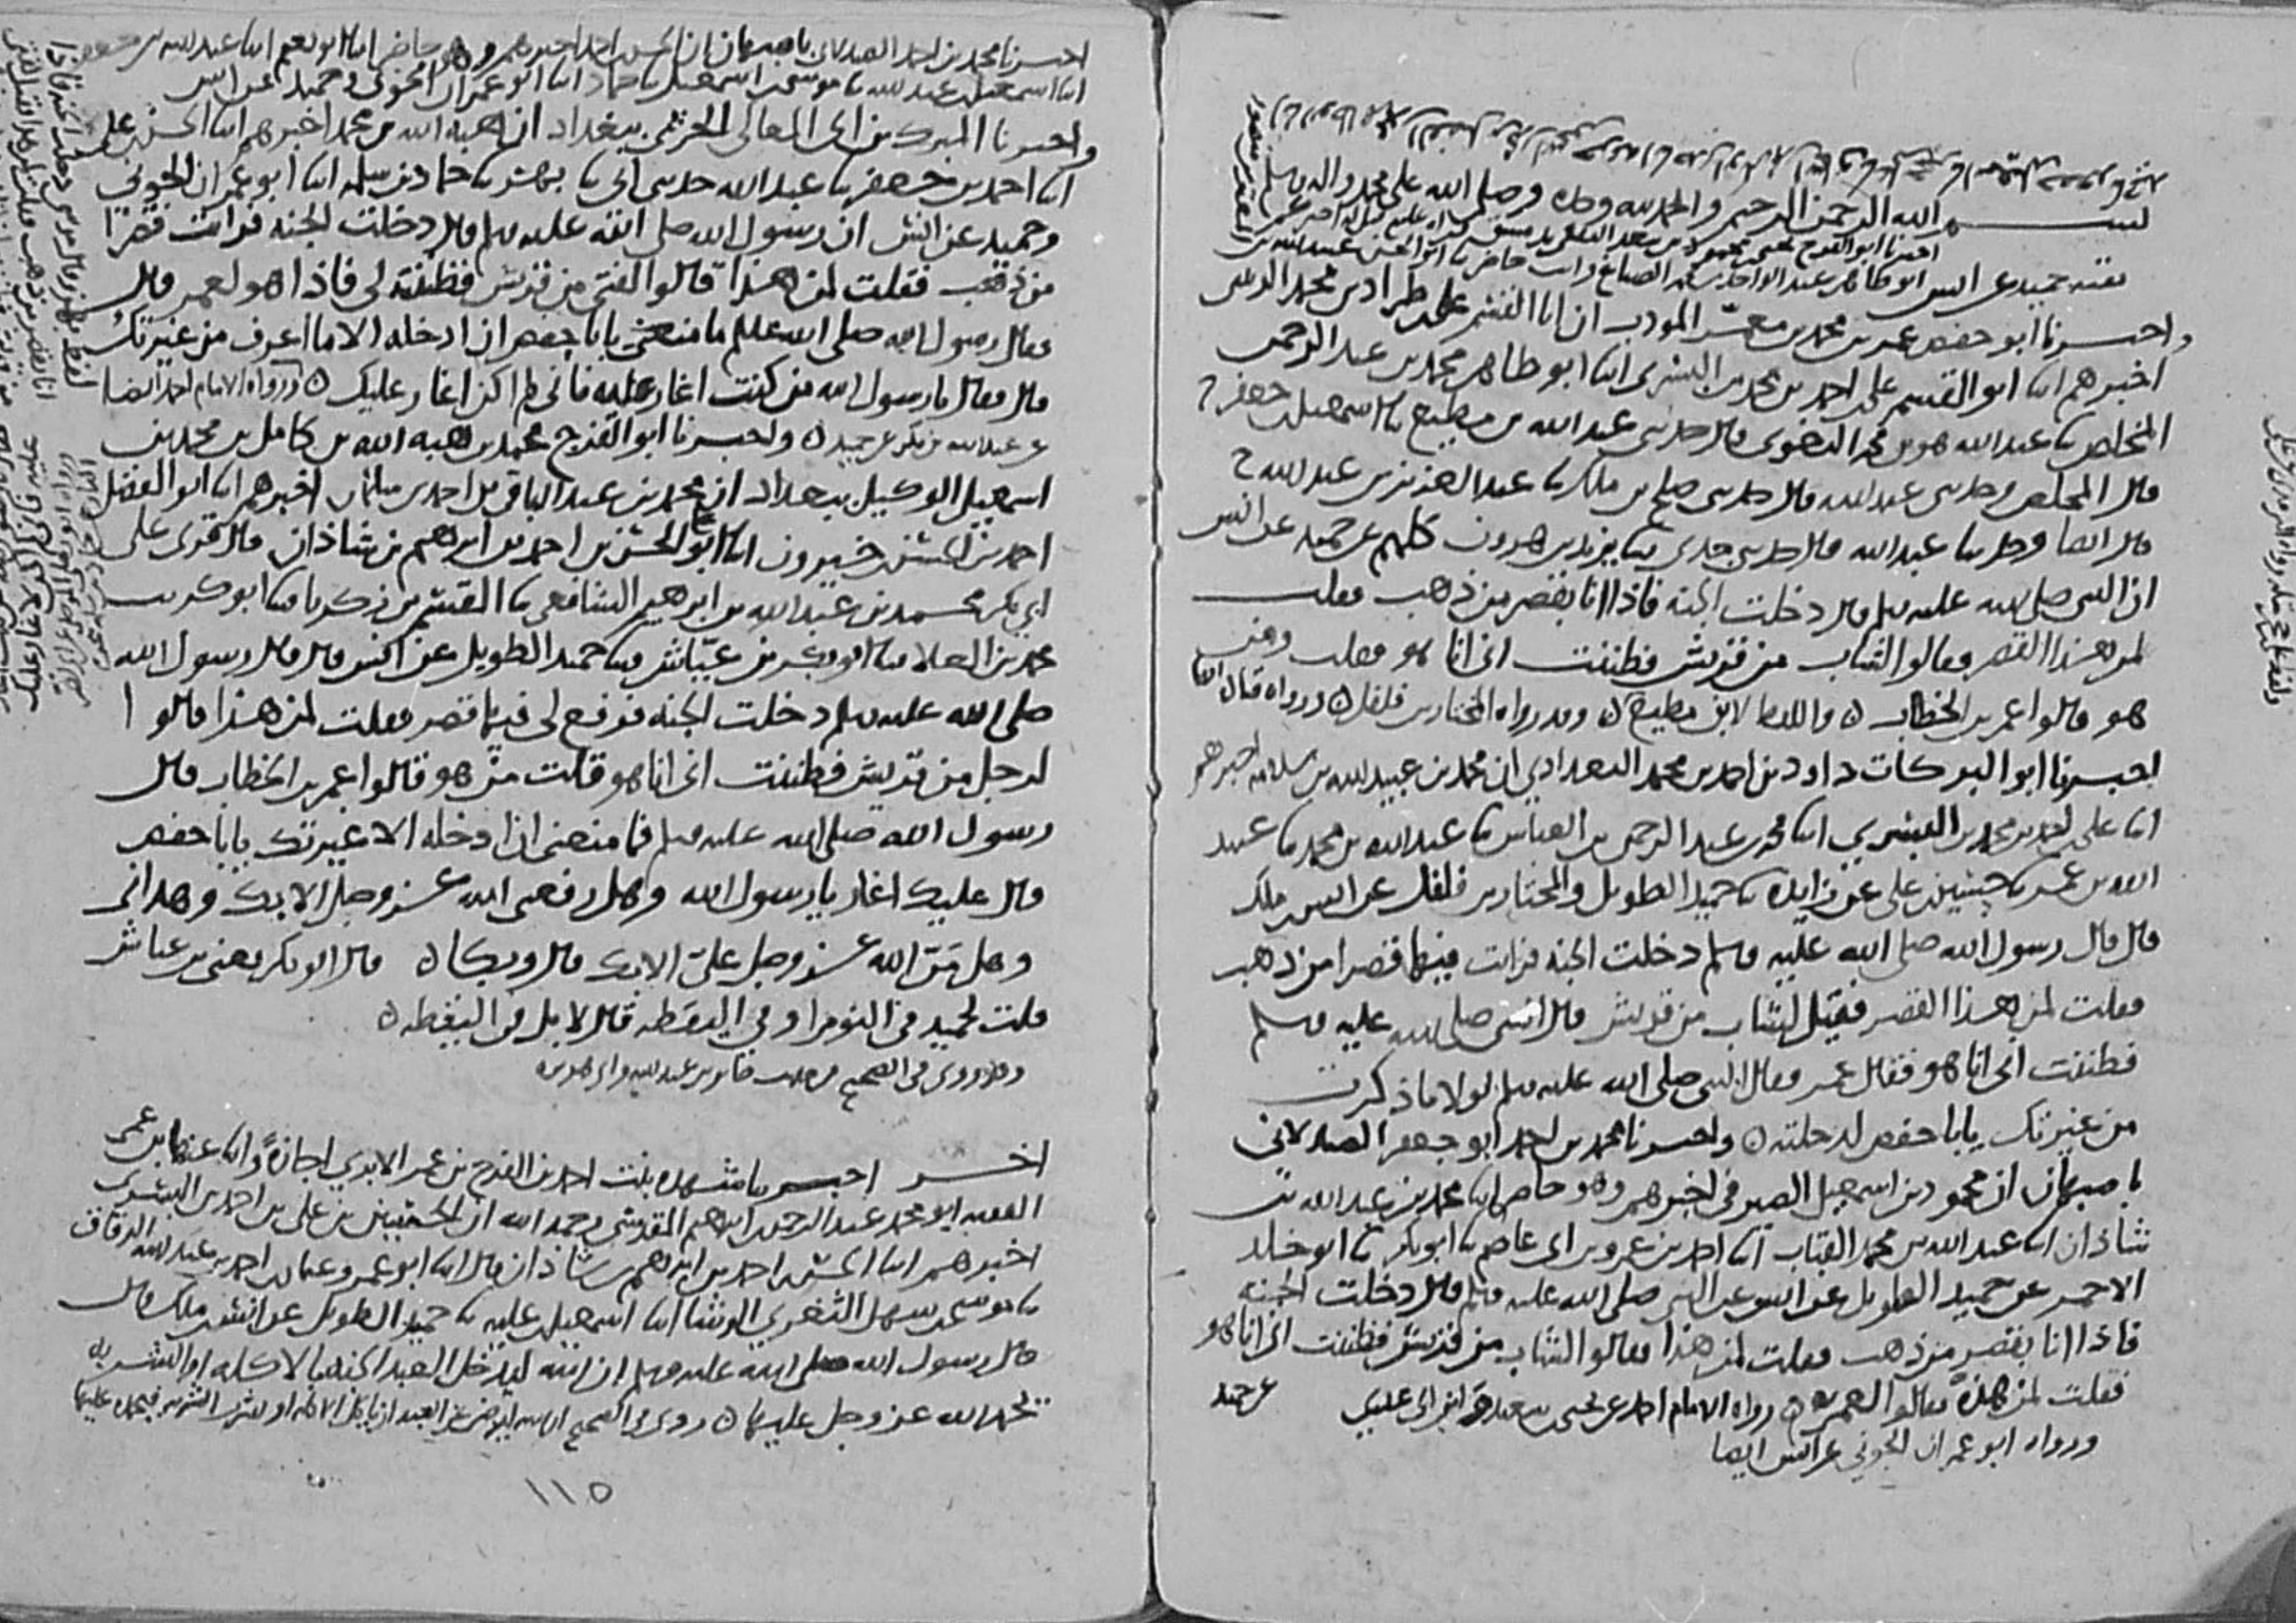 بسم الله الرحمن الرحيم والحمد لله وحده وصلى الله على محمد واله وسلم
بقية حميد عن انس
واخبرنا ابو حفص عمر بن محمد بن معمر المودب ان ابا القسم على بن طراد بن محمد الزينبى
اخبرهم ابنا ابو القسم على بن احمد بن محمد بن البسرى ابنا ابو طاهر محمد بن عبد الرحمن
المخلص نا عبد الله هو بن محمد البغوى قال حدثنى عبد الله بن مطيع نا اسمعيل بن جعفر ح
قال المخلص وحدثنى عبد الله قال حدثنى صلح بن ملك نا عبد العزيز بن عبد الله ح
قال ايضا وحدثنا عبد الله قال حدثنى جدى نا يزيد بن هرون كلهم عن حميد عن انس
ان النبى صلى الله عليه وسلم قال دخلت الجنة فاذا انا بقصر من ذهب فقلت
لمن هذا القصر فقالوا لشاب من قريش فظننت انى انا هو فقلت ومن
هو قالوا عمر بن الخطاب ه واللفظ لابن مطيع ه وقد رواه المختار بن فلفل ه ورواه قتادة ايضا
اخبرنا ابو البركات داود بن احمد بن محمد البغدادي ان محمد بن عبيد الله بن سلامه اخبرهم
ابنا على بن احمد بن محمد بن البسري ابنا محمد بن عبد الرحمن بن العباس نا عبد الله بن محمد نا عبد
الله بن عمر نا حسين بن على عن زايده نا حميد الطويل والمختار بن فلفل عن انس بن ملك
قال قال رسول الله صلى الله عليه وسلم دخلت الجنه فرايت فيها قصرا من ذهب
فقلت لمن هذا القصر فقيل لشاب من قريش قال النبى صلى الله عليه وسلم
فظننت انى انا هو فقال عمر وقال النبى صلى الله عليه وسلم لولا ما ذكرت
من غيرتك يابا حفص لدخلته ه واخبرنا محمد بن احمد ابو جعفر الصيدلانى
باصبهان ان محمود بن اسمعيل الصيرفى اخبرهم وهو حاضر ابنا محمد بن عبد الله بن
شاذان ابنا عبد الله بن محمد القباب ابنا احمد بن عمرو بن ابى عاصم نا ابو بكر نا ابو خالد
الاحمر عن حميد الطويل عن انس عن النبى صلى الله عليه وسلم قال دخلت الجنه
فاذا انا بقصر من ذهب فقلت لمن هذا فقالوا لشاب من قريش فظننت انى انا هو
فقلت لمن هذا فقالوا لعمر ه رواه الامام احمد عن يحيى بن سعيد وابن ابى عدي عن حميد
ورواه ابو عمران الجوني عن انس ايضا
اخبرنا محمد بن احمد الصيدلانى باصبهان ان الحسن بن احمد اخبرهم وهو حاضر ابنا ابو نعيم ابنا عبد الله بن جعفر
ابنا اسمعيل بن عبد الله نا موسى بن اسمعيل نا حماد ابنا ابو عمران الجونى وحميد عن انس
واخبرنا المبرك بن ابى المعالى الحريمى ببغداد ان هبه الله بن محمد اخبرهم ابنا الحسن بن على
ابنا احمد بن جعفر نا عبد الله حدثنى ابى نا بهز نا حماد بن سلمه ابنا ابو عمران الجونى
وحميد عن انس ان رسول الله صلى الله عليه وسلم قال دخلت الجنه فرايت قصرا
من ذهب فقلت لمن هذا قالوا لفتى من قريش فظننته لى فاذا هو لعمر قال
فقال رسول الله صلى الله عليه وسلم ما منعنى يابا حفص ان ادخله الا ما اعرف من غيرتك
قال فقال يا رسول الله من كنت اغار عليه فانى لم اكن اغار عليك ه ورواه الامام احمد ايضا
عن عبد الله بن بكر عن حميد ه واخبرنا ابو الفرج محمد بن هبه الله بن كامل بن محمد بن
اسمعيل الوكيل ببغداد ان محمد بن عبد الباقى بن احمد بن سلمان اخبرهم ابنا ابو الفضل
احمد بن الحسن بن خيرون ابنا ابو على الحسن بن احمد بن ابرهيم بن شاذان قال قرى على
ابى بكر محمد بن عبد الله بن ابرهيم الشافعى نا القسم بن زكريا نا ابو كريب
محمد بن العلا نا ابو بكر بن عياش نا حميد الطويل عن انس قال قال رسول الله
صلى الله عليه وسلم دخلت الجنه فرفع لى فيها قصر فقلت لمن هذا قالوا
لرجل من قريش فظننت انى انا هو قلت من هو قالوا عمر بن الخطاب قال
رسول الله صلى الله عليه وسلم فما منعنى ان ادخله الا غيرتك يابا حفص
قال عليك اغار يا رسول الله وهل رفعنى الله عز وجل الا بك وهدانى
وهل من الله عز وجل على الا بك قال وبكا ه قال ابو بكر يعنى بن عياش
قلت لحميد فى النوم او فى اليقظه قال لا بل فى اليقظه ه
وقد روى فى الصحيح من حديث جابر بن عبد الله وابى هريره
اخر اخبرتنا شهده بنت احمد بن الفرج بن عمر الابري اجازة وابنا عنها بن عمى
الفقيه ابو محمد عبد الرحمن بن ابرهيم المقدسى رحمه الله ان الحسين بن على بن احمد بن البسرى
اخبرهم ابنا الحسن بن احمد بن ابرهيم بن شاذان قال ابنا ابو عمرو عثمان بن احمد بن عبد الله الدقاق
نا موسى بن سهل الثغري الوشا ابنا اسمعيل بن عليه نا حميد الطويل عن انس بن ملك قال
قال رسول الله صلى الله عليه وسلم ان الله ليدخل العبد الجنه بالاكله او الشربه
يحمد الله عز وجل عليها ه روى فى الصحيح ان الله ليرضى عن العبد ان ياكل الاكله او يشرب الشربه فيحمده عليها
١١٥